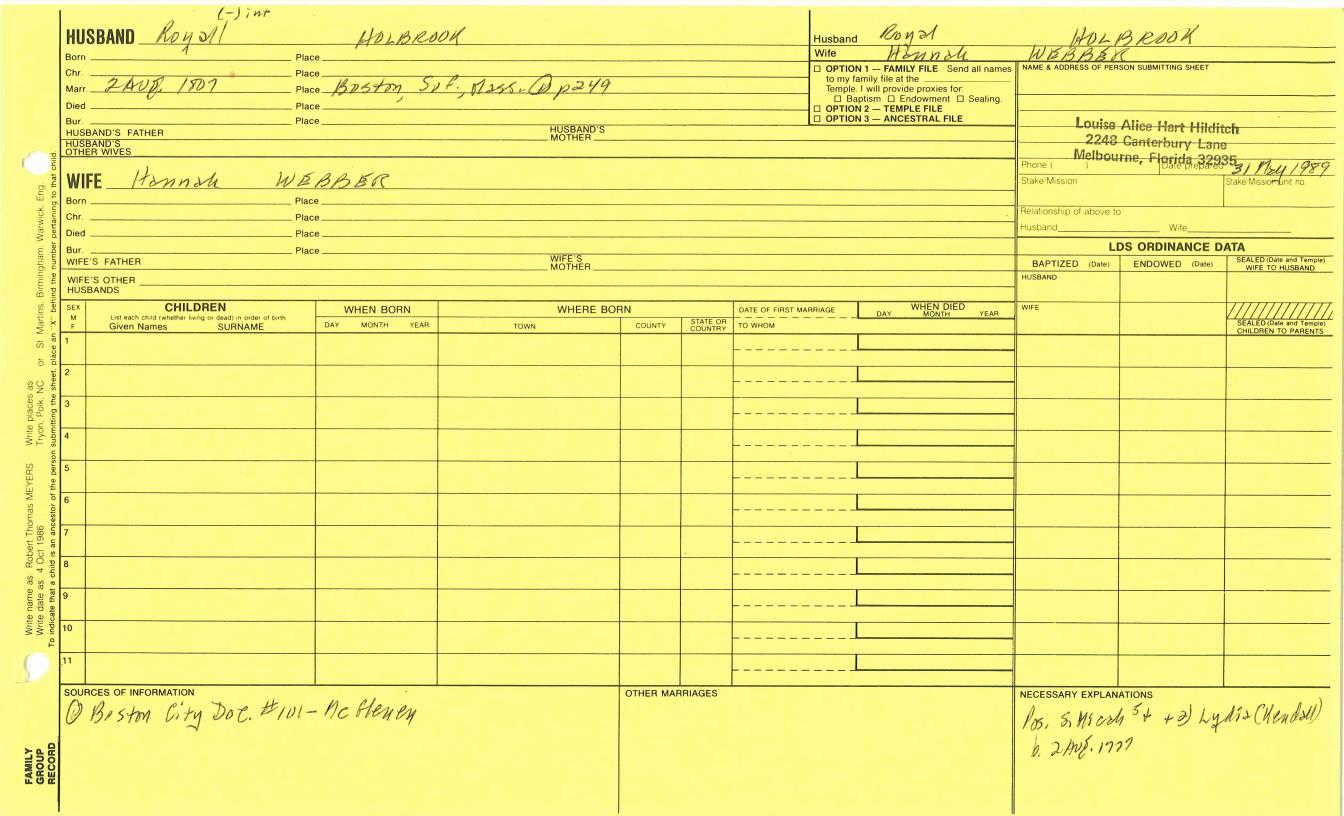 (-) int
HUSBAND Royall HOLBROOK
Born Place
Chr. Place
Marr 2 AUG. 1807 Place Boston, Suf., Mass. ① p249
Died Place
Bur. Place
HUSBAND'S FATHER HUSBAND'S MOTHER
HUSBAND'S OTHER WIVES
Husband Royal HOLBROOK
Wife Hannah WEBBER
☐ OPTION 1 — FAMILY FILE Send all names
to my family file at the
Temple. I will provide proxies for:
☐ Baptism ☐ Endowment ☐ Sealing.
☐ OPTION 2 — TEMPLE FILE
☐ OPTION 3 — ANCESTRAL FILE
NAME & ADDRESS OF PERSON SUBMITTING SHEET
Louise Alice Hart Hilditch
2248 Canterbury Lane
Melbourne, Florida 32935
Phone ( ) Date prepared 31 May 1989
Stake/Mission Stake/Mission unit no.
Relationship of above to
Husband Wife
WIFE Hannah WEBBER
Born Place
Chr. Place
Died Place
Bur. Place
WIFE'S FATHER WIFE'S MOTHER
WIFE'S OTHER HUSBANDS
LDS ORDINANCE DATA
BAPTIZED (Date) ENDOWED (Date) SEALED (Date and Temple) WIFE TO HUSBAND
HUSBAND
WIFE
SEALED (Date and Temple) CHILDREN TO PARENTS
SEX M F
CHILDREN
List each child (whether living or dead) in order of birth
Given Names SURNAME
WHEN BORN
DAY MONTH YEAR
WHERE BORN
TOWN COUNTY STATE OR COUNTRY
DATE OF FIRST MARRIAGE
TO WHOM
WHEN DIED
DAY MONTH YEAR
1
2
3
4
5
6
7
8
9
10
11
SOURCES OF INFORMATION
① Boston City Doc. #101-
OTHER MARRIAGES
NECESSARY EXPLANATIONS
Pos. S. Micah 5+ +3) Lydia (Kendall)
b. 2 AUG. 1777
Write name as Robert Thomas MEYERS Write places as Tryon, Polk, NC or St Martins, Birmingham, Warwick, Eng.
Write date as 4 Oct 1986
To indicate that a child is an ancestor of the person submitting the sheet, place an "X" behind the number pertaining to that child.
FAMILY GROUP RECORD